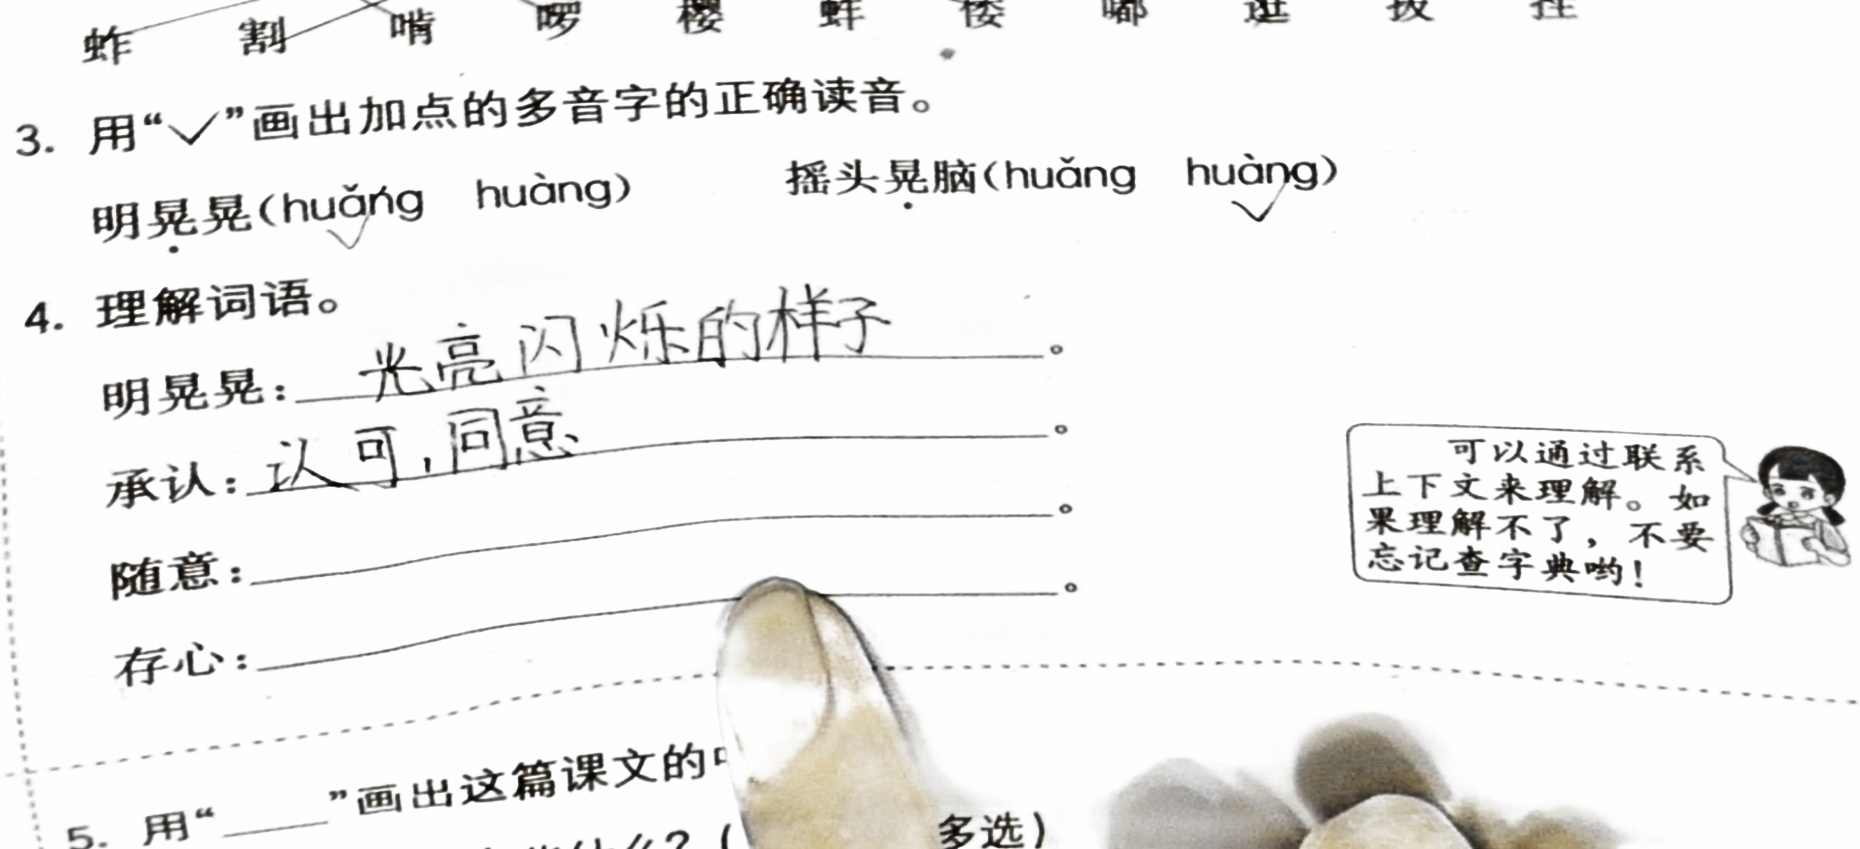 蚱 割 啃 啰 樱 蚌 偻 嘟 逛 拔 挂
3. 用“✓”画出加点的多音字的正确读音。
明晃晃(huǎng huàng) 摇头晃脑(huǎng huàng)
4. 理解词语。
明晃晃:光亮闪烁的样子。
承认:认可,同意。
随意: 。
存心: 。
可以通过联系
上下文来理解。如
果理解不了,不要
忘记查字典哟!
5. 用“____”画出这篇课文的
多选)